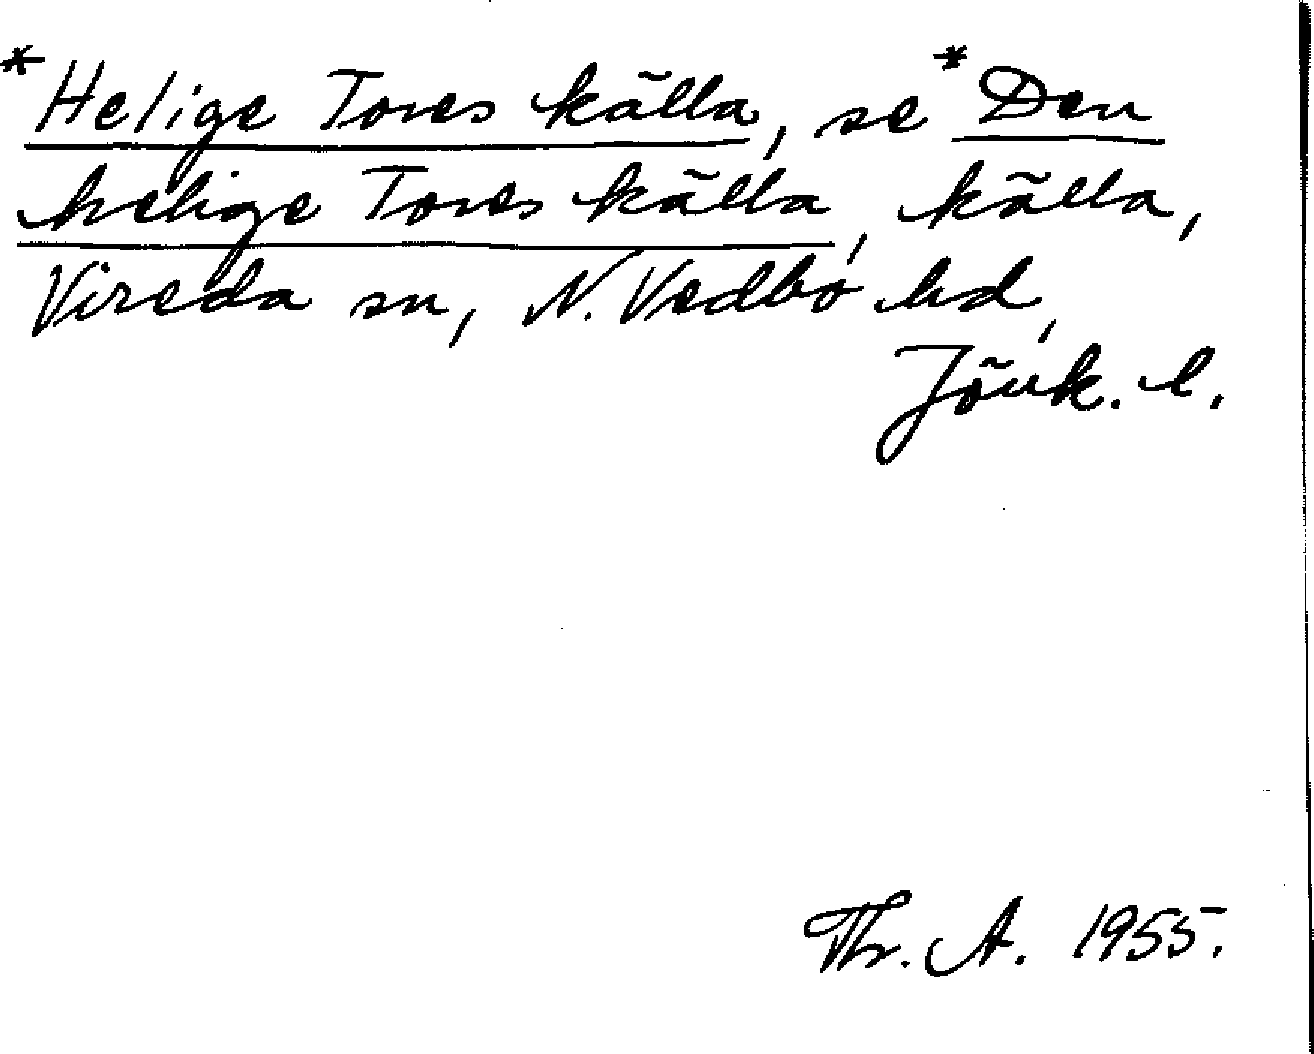 *Helige Tores källa, se *Den
helige Tores källa, källa,
Vireda sn, N. Vedbo hd,
Jönk. l.
Th. A. 1955.